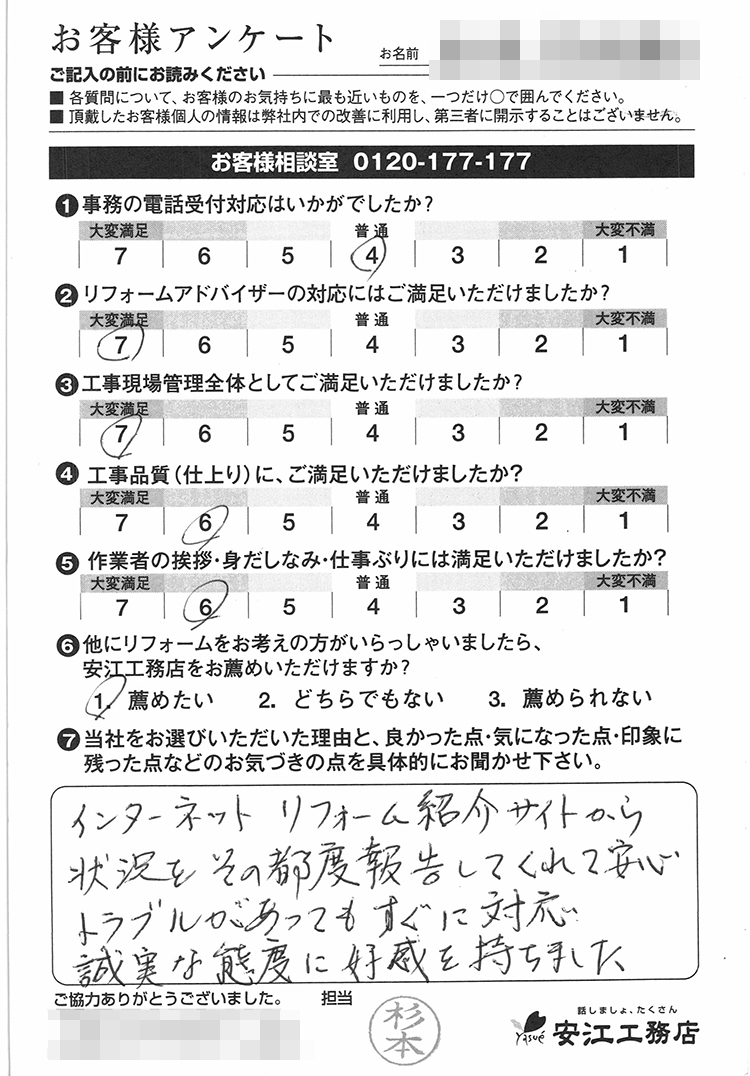 お客様アンケート
お名前
ご記入の前にお読みください
■ 各質問について、お客様のお気持ちに最も近いものを、一つだけ○で囲んでください。
■ 頂戴したお客様個人の情報は弊社内での改善に利用し、第三者に開示することはございません。
お客様相談室 0120-177-177
❶ 事務の電話受付対応はいかがでしたか?
大変満足 普通 大変不満
7 6 5 4 3 2 1
❷ リフォームアドバイザーの対応にはご満足いただけましたか?
大変満足 普通 大変不満
7 6 5 4 3 2 1
❸ 工事現場管理全体としてご満足いただけましたか?
大変満足 普通 大変不満
7 6 5 4 3 2 1
❹ 工事品質(仕上り)に、ご満足いただけましたか?
大変満足 普通 大変不満
7 6 5 4 3 2 1
❺ 作業者の挨拶・身だしなみ・仕事ぶりには満足いただけましたか?
大変満足 普通 大変不満
7 6 5 4 3 2 1
❻ 他にリフォームをお考えの方がいらっしゃいましたら、
安江工務店をお薦めいただけますか?
1. 薦めたい 2. どちらでもない 3. 薦められない
❼ 当社をお選びいただいた理由と、良かった点・気になった点・印象に
残った点などのお気づきの点を具体的にお聞かせ下さい。
インターネット リフォーム紹介サイトから
状況をその都度報告してくれて安心
トラブルがあってもすぐに対応
誠実な態度に好感を持ちました
ご協力ありがとうございました。 担当
杉本
話しましょ、たくさん
Yasué 安江工務店